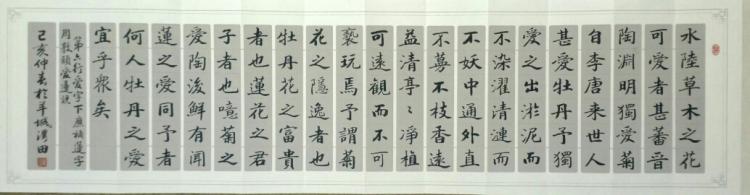 水陸草木之花
可愛者甚蕃晉
陶淵明獨愛菊
自李唐来世人
甚愛牡丹予獨
愛之出淤泥而
不染濯清漣而
不妖中通外直
不蔓不枝香遠
益清亭〻淨植
可遠觀而不可
褻玩焉予謂菊
花之隱逸者也
牡丹花之富貴
者也蓮花之君
子者也噫菊之
愛陶後鮮有聞
蓮之愛同予者
何人牡丹之愛
宜乎眾矣
第六行愛字下應補蓮字
周敦頤愛蓮說
己亥仲春於羊城